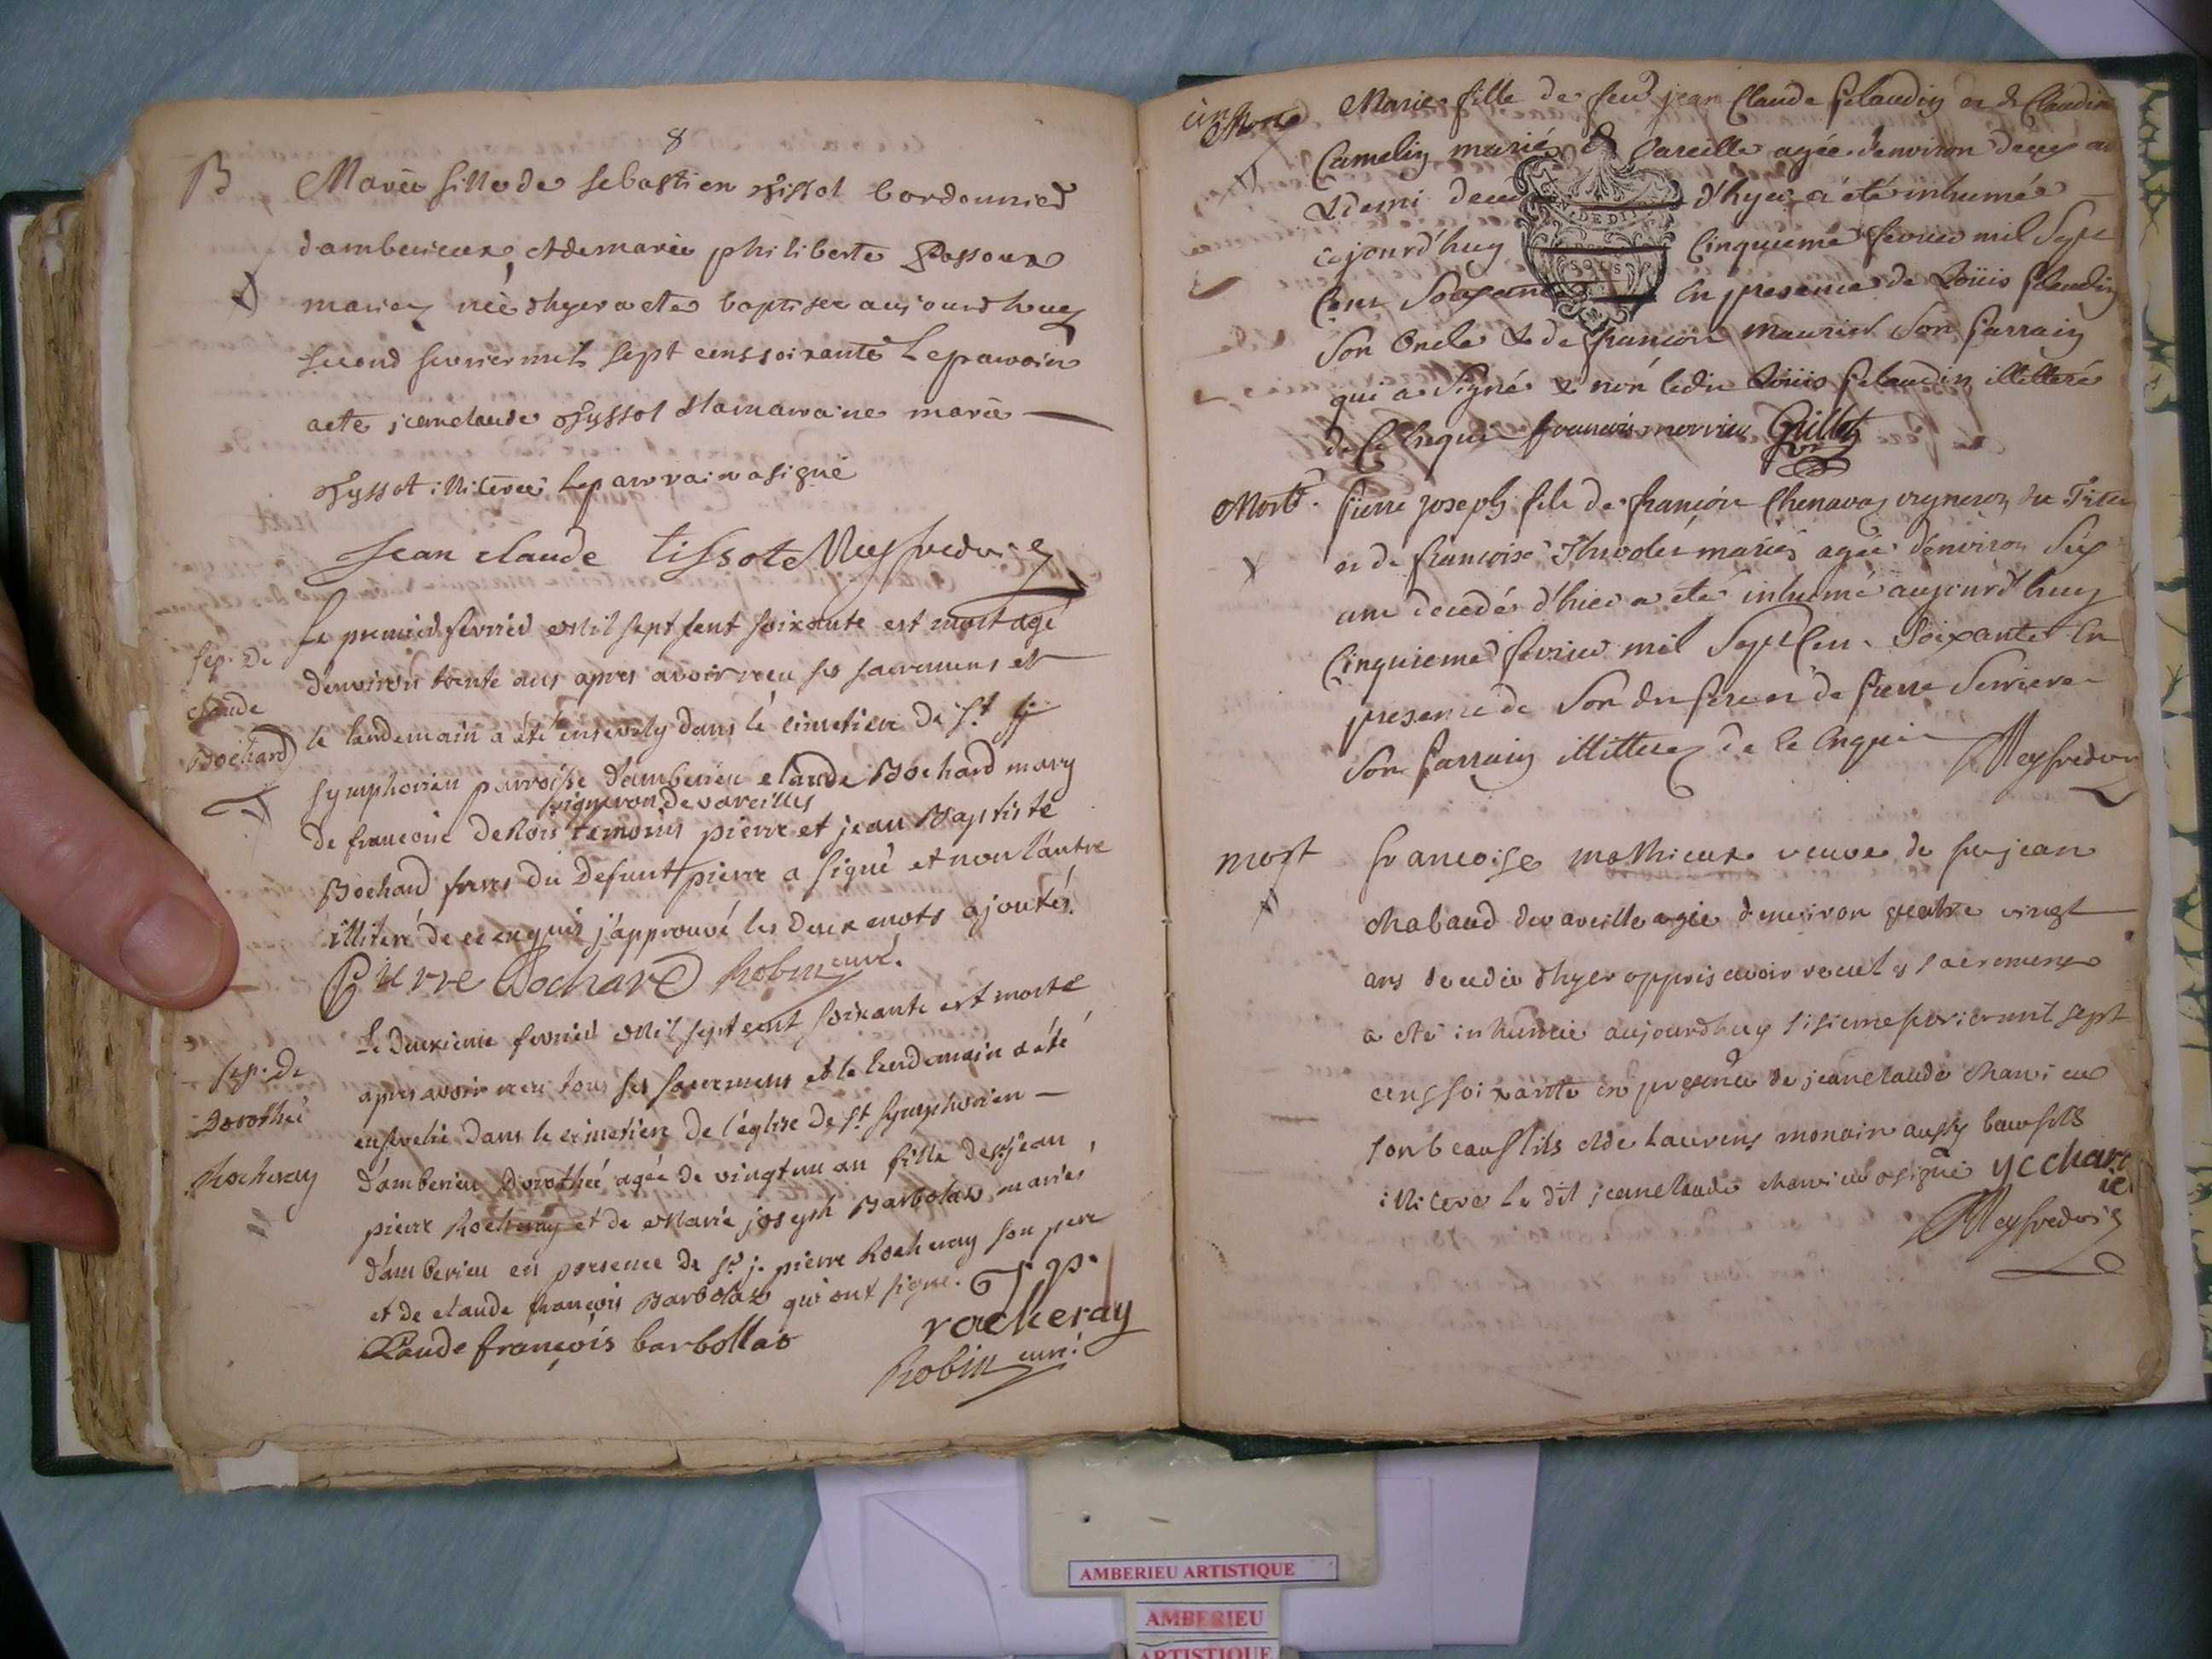 8
B
Marie fille de sebastien tissot Cordonnier
damberieux et de marie philiberte Passoux
mariez née d hyer a ete baptisee aujourdhuy
second fevrier mil sept cens soixante Le parrain
a ete jean claude tyssot et la marraine marie
tyssot illiteree Le parrain a signé
Jean claude tissote Meyfredin
sep. de
claude
Bochard
Le premier fevrier Mil sept cent soixante est mort agé
denviron trente ans apres avoir receu ses sacremens et
le landemain a été ensevely dans le cimetiere de st
symphorien parroisse damberieu claude Bochard mary
vigneron de vareilles
de francoise derois temoins pierre et jean Baptiste
Bochard freres du defunt pierre a signé et non l'autre
illiteré de ce enquis j'approuvé les deux mots ajoutés.
Pierre Bochard Robin curé.
sep. de
dorothée
Rocheray
Le deuxieme fevrier Mil sept cent soixante est morte
apres avoir receu tous ses sacremens et le lendemain a été
ensevelie dans le cimetiere de l'église de st symphorien
d'amberieu dorothée agée de vingt un an fille de sr jean
pierre Rocheray et de Marie joseph Barbolat mariés
d'amberieu en presence de sr j. pierre Rocheray son pere
et de claude françois Barbolat qui ont signe. J. p.
Claude françois barbollat rocheray
Robin curé.
Morte
Marie fille de feu jean Claude Pelaudin et de Claudine
Camelin mariés de Vareille agée denviron deux ans
& demi d'hyer a été inhumée
cejourd'huy Cinquieme fevrier mil Sept
Cent Soixante En presence de Loüis Pelaudin
Son Oncle & de françois Maurier Son Parrain
qui a Signé & non ledit Loüis Pelaudin illitteré
de Ce Enquis francois morrier Grillet
Mort.
Pierre joseph fils de françois Chenavaz vigneron du Tiret
et de francoise mariés agé d'environ Six
ans decedé d'hier a été inhumé aujourd'huy
Cinquieme fevrier mil Sept Cent Soixante En
presence de Son dit Pere et de Pierre
Son Parrain illitterez de Ce Enquis Meyfredin
mort
francoise mathieux veuve de feu jean
Chabaud de vareille agée denviron quatre vingt
ans decedée d hyer appris avoir receut les sacremens
a ete inhumée aujourdhuy sisieme fevrier mil sept
cens soixante en presence de jean claude charvieux
son beau fils et de Laurens monain aussy beau fils
illitere Le dit jean claude charvieux a signé
Meyfredin
AMBERIEU ARTISTIQUE
AMBERIEU
ARTISTIQUE